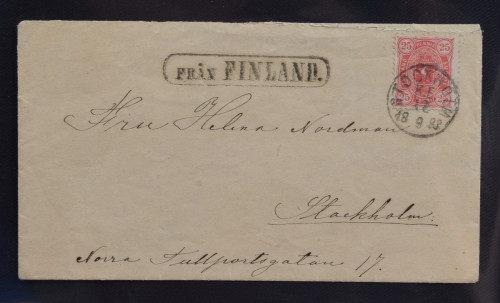 FRÅN FINLAND.
25 25
STOCKHOLM
Fru Helena Nordman
Stockholm.
Norra Tullportsgatan 17.